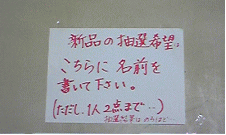 新品の抽選希望は
こちらに名前を
書いて下さい。
(ただし、1人2点まで…)
抽選結果は のちほど…